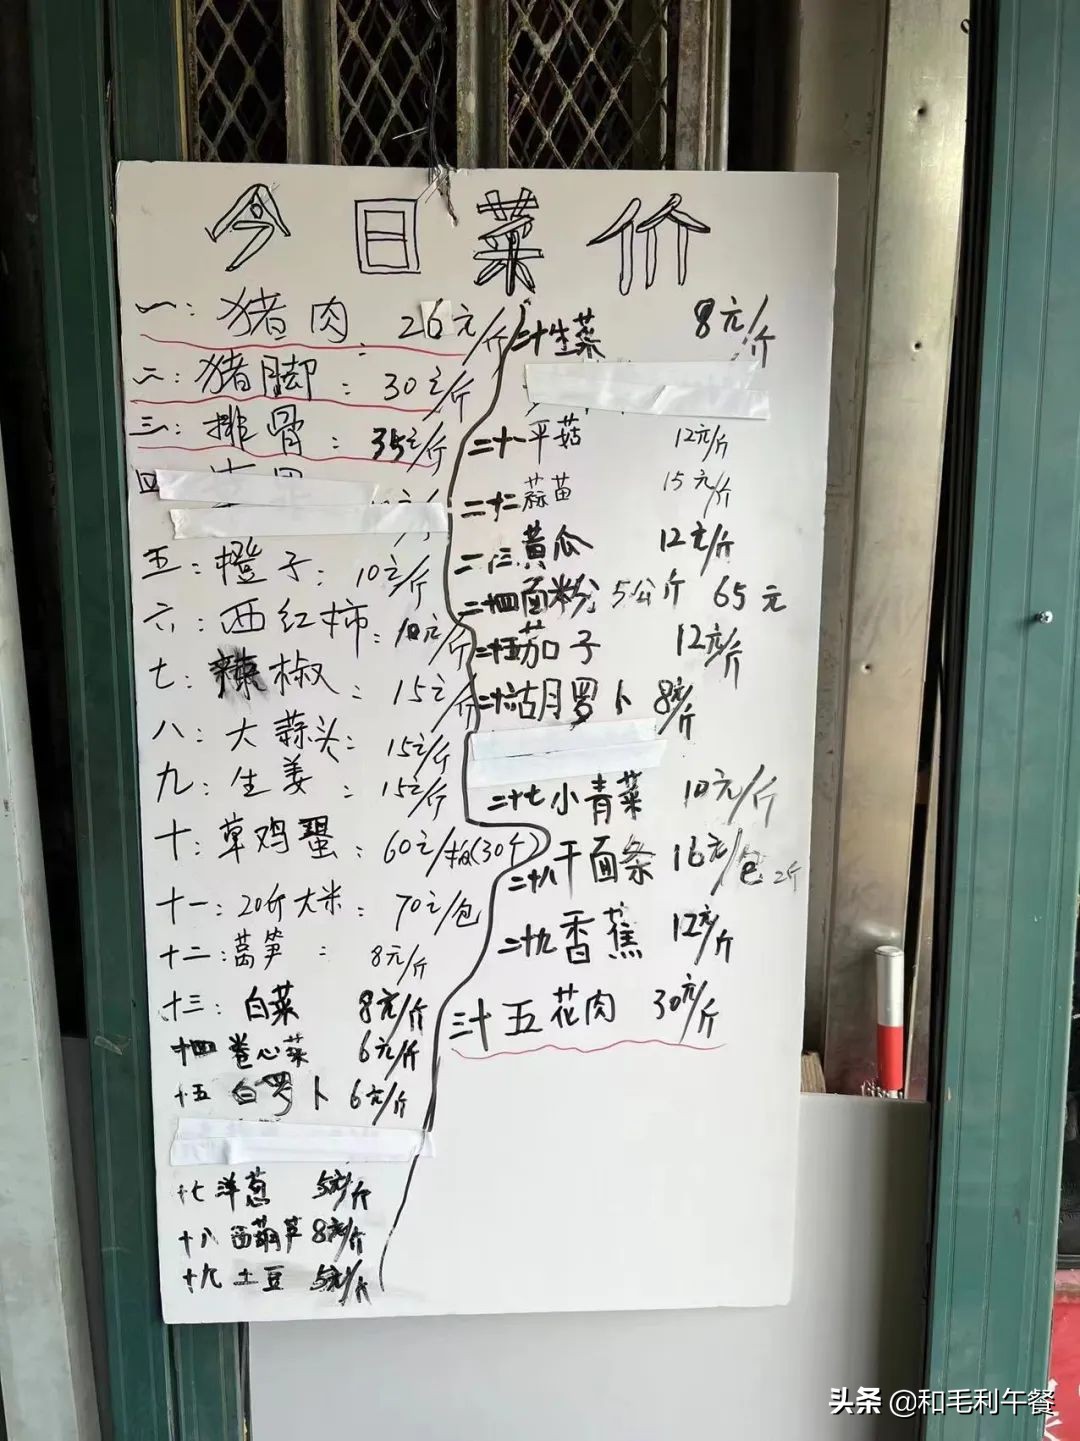 今日菜价
一：猪肉：26元/斤
二：猪脚：30元/斤
三：排骨：35元/斤
四
五：橙子：10元/斤
六：西红柿：10元/斤
七：辣椒：15元/斤
八：大蒜头：15元/斤
九：生姜：15元/斤
十：草鸡蛋：60元/板(30个)
十一：20斤大米：70元/包
十二：莴笋：8元/斤
十三：白菜 8元/斤
十四 卷心菜 6元/斤
十五 白罗卜 6元/斤
十七 洋葱 5元/斤
十八 西葫芦 8元/斤
十九 土豆 5元/斤
二十生菜 8元/斤
二十一平菇 12元/斤
二十二蒜苗 15元/斤
二十三黄瓜 12元/斤
二十四面粉 5公斤 65元
二十五茄子 12元/斤
二十六胡罗卜 8元/斤
二十七小青菜 10元/斤
二十八干面条 16元/包2斤
二十九香蕉 12元/斤
三十五花肉 30元/斤
头条 @和毛利午餐